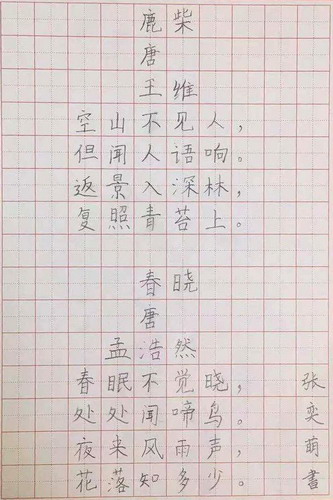 鹿柴
唐
王维
空山不见人，
但闻人语响。
返景入深林，
复照青苔上。
春晓
唐
孟浩然
春眠不觉晓，
处处闻啼鸟。
夜来风雨声，
花落知多少。
张奕萌書